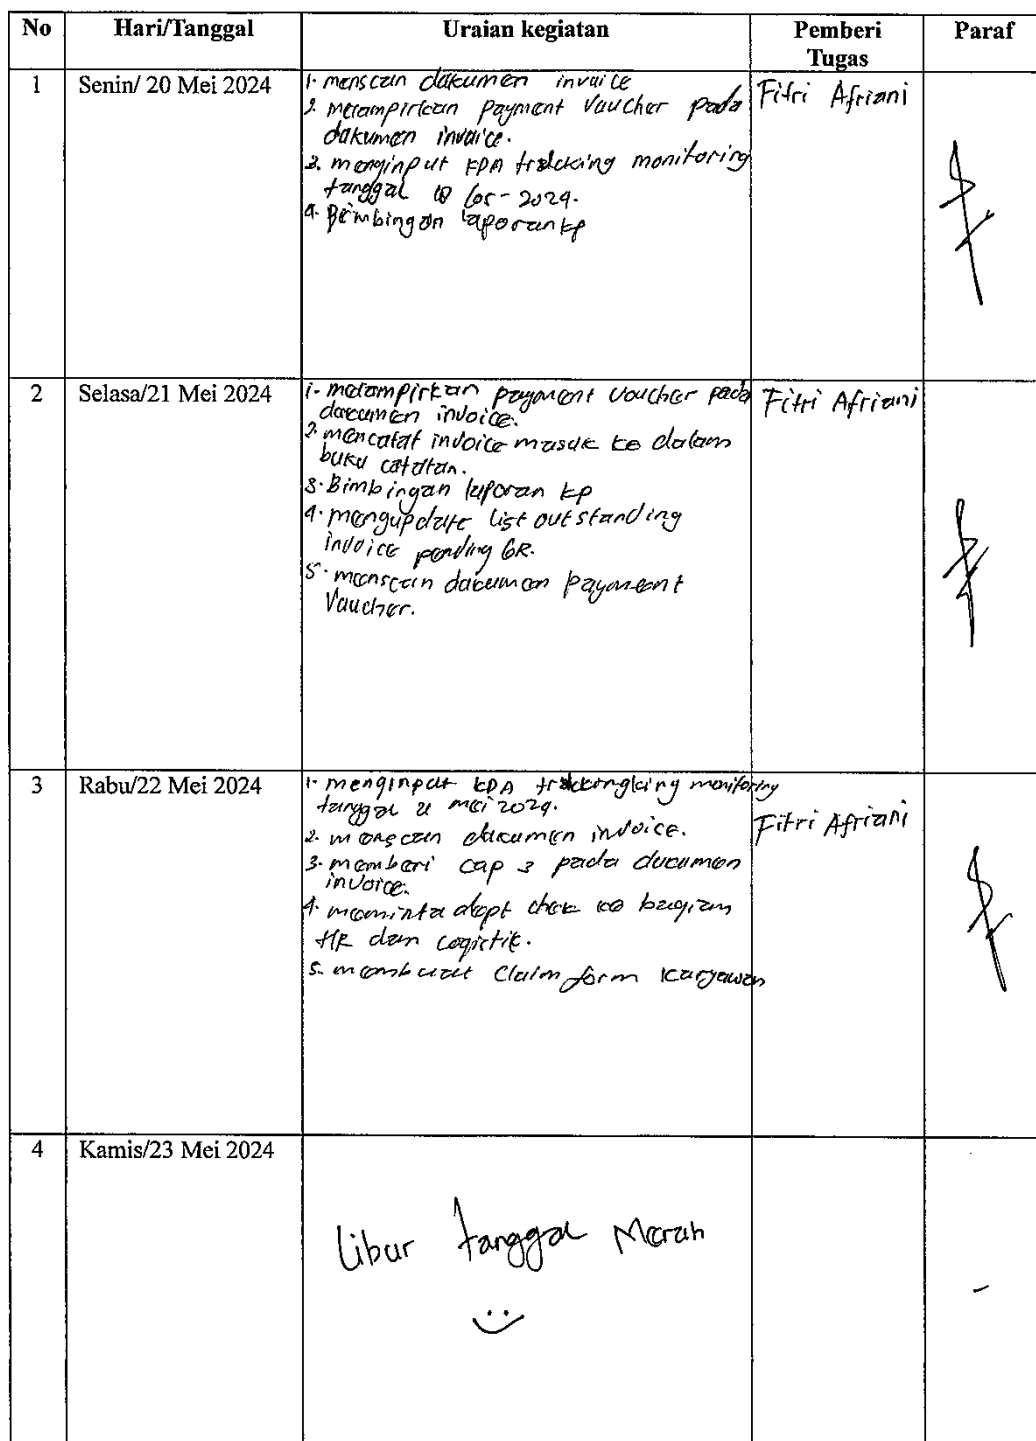 No Hari/Tanggal Uraian kegiatan Pemberi Tugas Paraf
1 Senin/ 20 Mei 2024
1. menscan dokumen invoice
2. melampirkan payment Voucher pada
dokumen invoice.
3. menginput KPA tracking monitoring
tanggal /05-2024.
4. Bimbingan laporan kp
Fitri Afriani
2 Selasa/21 Mei 2024
1. melampirkan payment Voucher pada
documen invoice.
2. mencatat invoice masuk ke dalam
buku catatan.
3. Bimbingan laporan kp
4. mengupdate list outstanding
invoice pending GR.
5. menscan documen payment
Vaucher.
Fitri Afriani
3 Rabu/22 Mei 2024
1. menginput KPA monitoring
tanggal 21 mei 2024.
2. menscan documen invoice.
3. memberi cap 3 pada documen
invoice.
4. meminta dept chek ke bagian
HR dan Logistik.
5. membuat Claim form karyawan
Fitri Afriani
4 Kamis/23 Mei 2024
Libur tanggal Merah
-